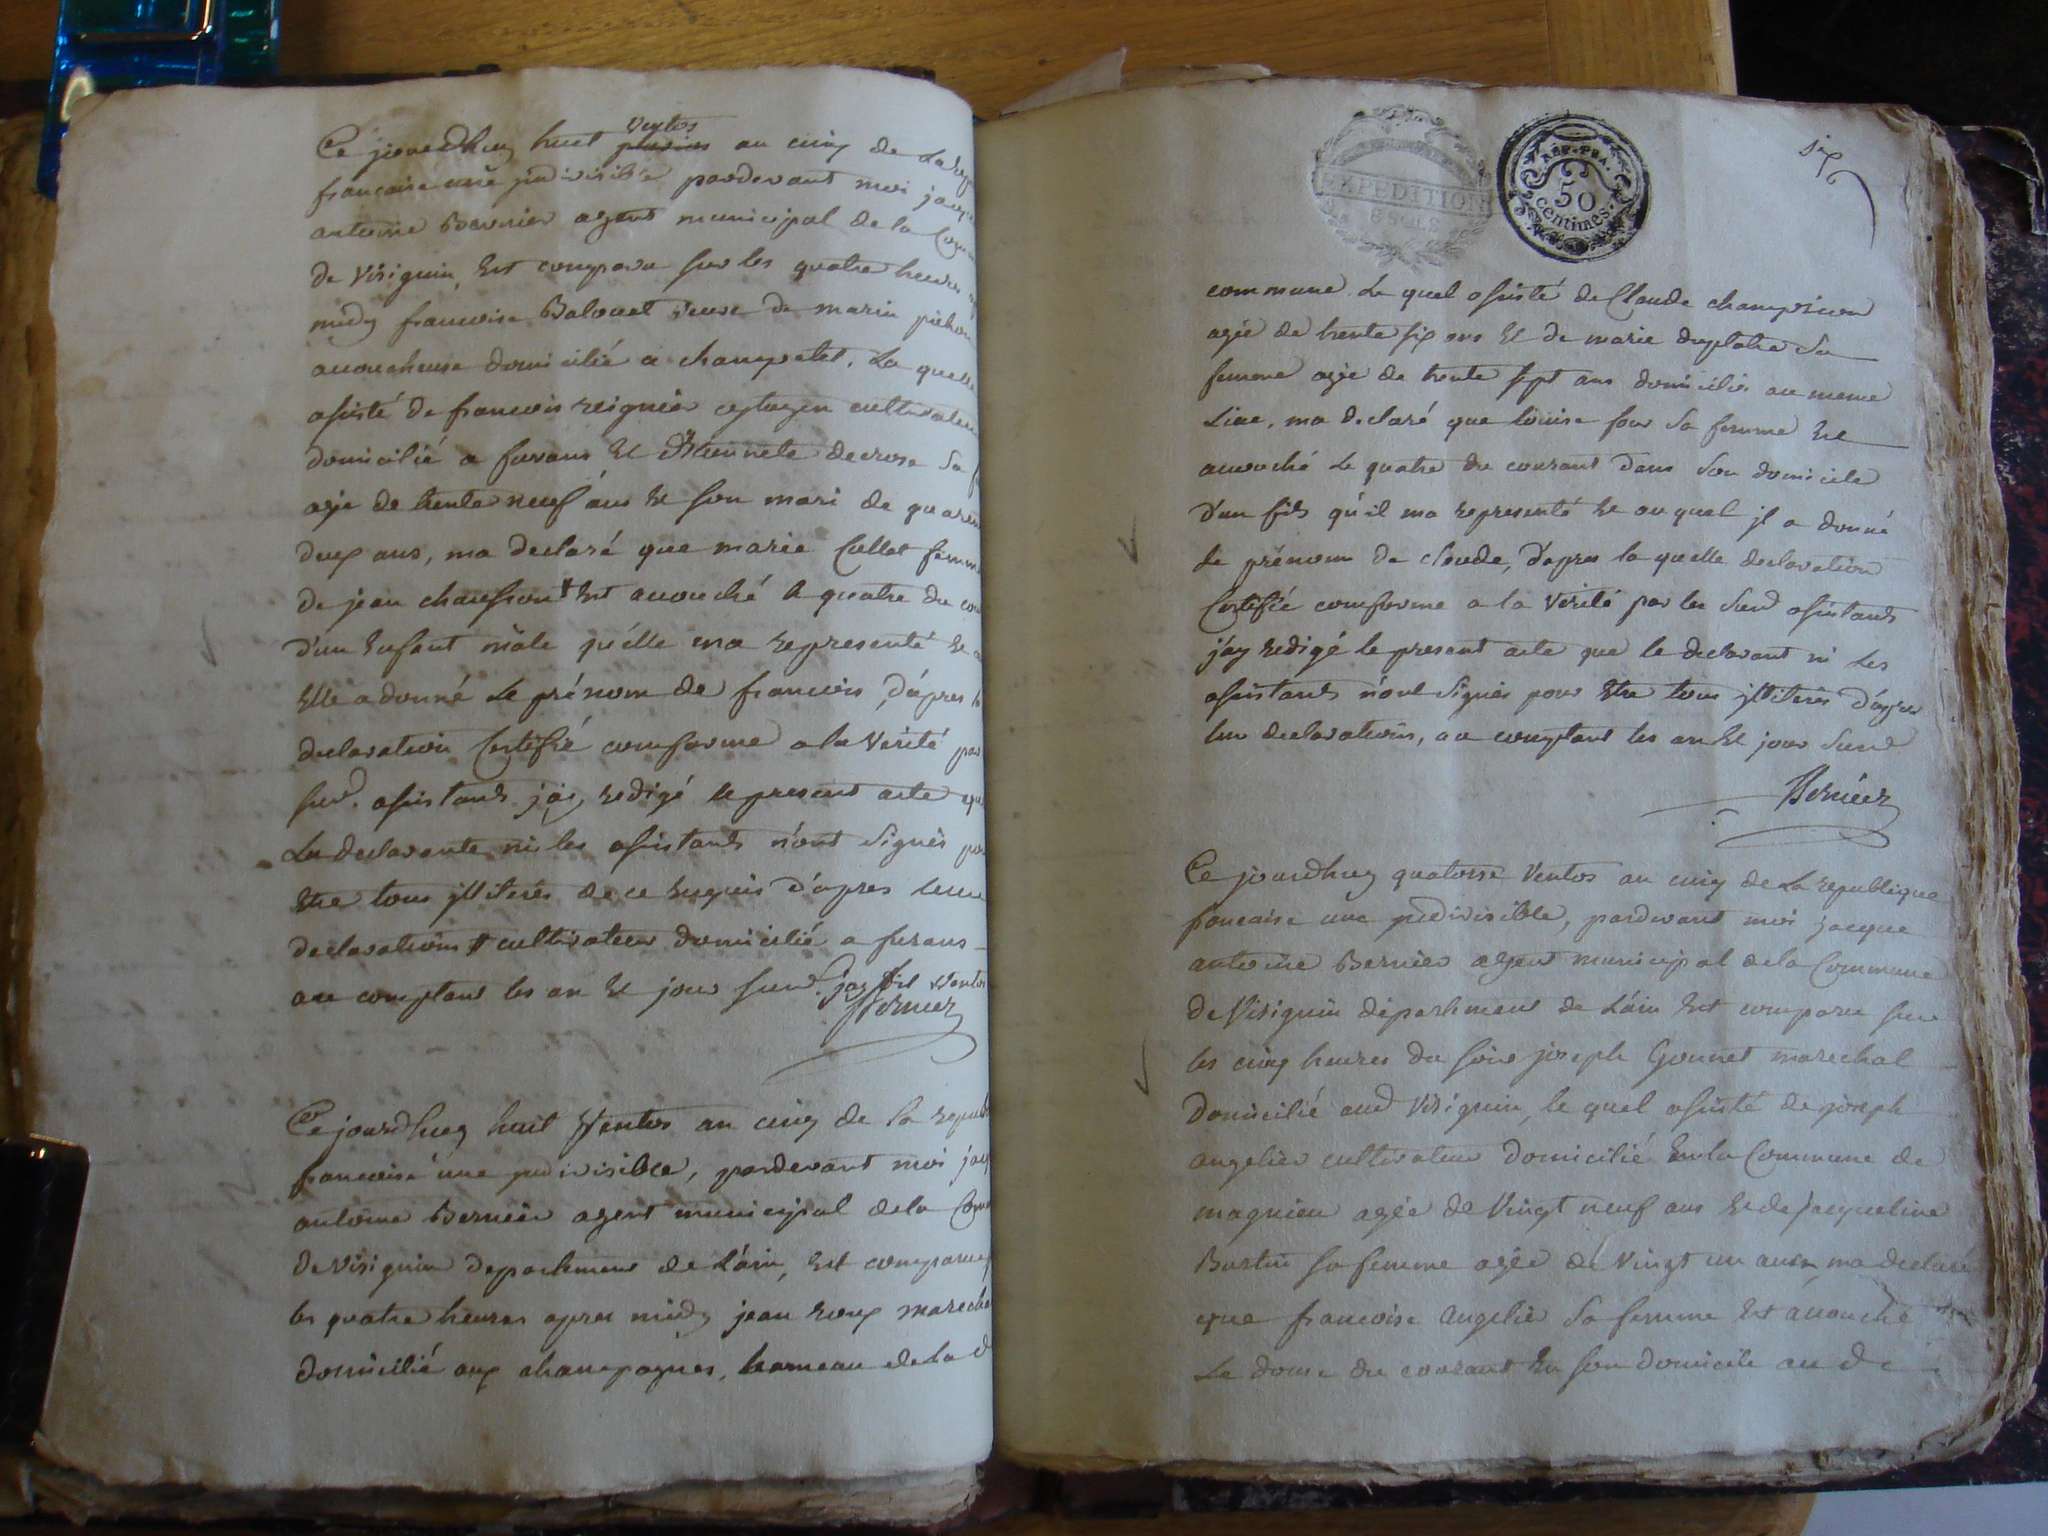 Ventos
Ce jourdhuy huit pluvios an cinq de la rep
francaise une jndivisible pardevant moi jacq
antoine Bernier agent municipal de la Com
de Visignin, Est comparu sur les quatre heures
midy francoise Balouet veuve de marin
acoucheuse domicilié a champetel, La quelle
asisté de francois reignier cultivateur
domicilié a furans Et decrose sa
agé de trente neuf ans Et son mari de quaren
deux ans, ma declaré que marie Collet femme
de jean Est acouché le quatre du cou
d'un Enfant mâle qu'elle ma representé Et
Elle a donné Le prénom de francois, d'apres
declaration Certifié comforme a la Verité par
surd. asistants jai redigé le present acte que
La declarante ni les asistants n'ont signés
Etre tous jlliterés de ce Enquis d'apres leur
declarations cultivateur domicilié a furans
au comptant les an Et jour surd. Ventos
Bernier
Ce jourdhuy huit Ventos an cinq de la republ
francaise une jndivisible, pardevant moi jacq
antoine Bernier agent municipal de la Com
de Visignin departement de L'ain, Est comparu
les quatre heures apres midy jean roux marechal
domicilié aux champagnes, hameau de La d
six
EXPEDITION
REP. FRA.
50
centimes
commune Le quel asisté de Claude champion
agé de trente six ans Et de marie duplatre sa
femme agée de trente sept ans domiciliés au meme
Lieu, ma declaré que Louise four sa femme Est
acouché Le quatre du courant dans son domicile
d'un fils qu'il ma representé Et au quel jl a donné
Le prénom de claude, d'apres la quelle declaration
Certifié comforme a la Verité par les surd asistants
j'ay redigé le present acte que le declarant ni les
asistants n'ont signés pour Etre tous jlliterés d'apres
leur declarations, au comptant les an Et jour surd
Bernier
Ce jourdhuy quatorse Ventos an cinq de La republique
francaise une jndivisible, pardevant moi jacque
antoine Bernier agent municipal de la Commune
de Visignin departement de L'ain Est comparu sur
les cinq heures du soir joseph Gonnet marechal
domicilié aud Visignin, le quel asisté de joseph
angelier cultivateur domicilié En la Commune de
magnieu agée de Vingt neuf ans Et de jacqueline
Burtin sa femme agée de Vingt un ans, ma declaré
que francoise angelier sa femme Est acouché
Le douse du courant En son domicile au d